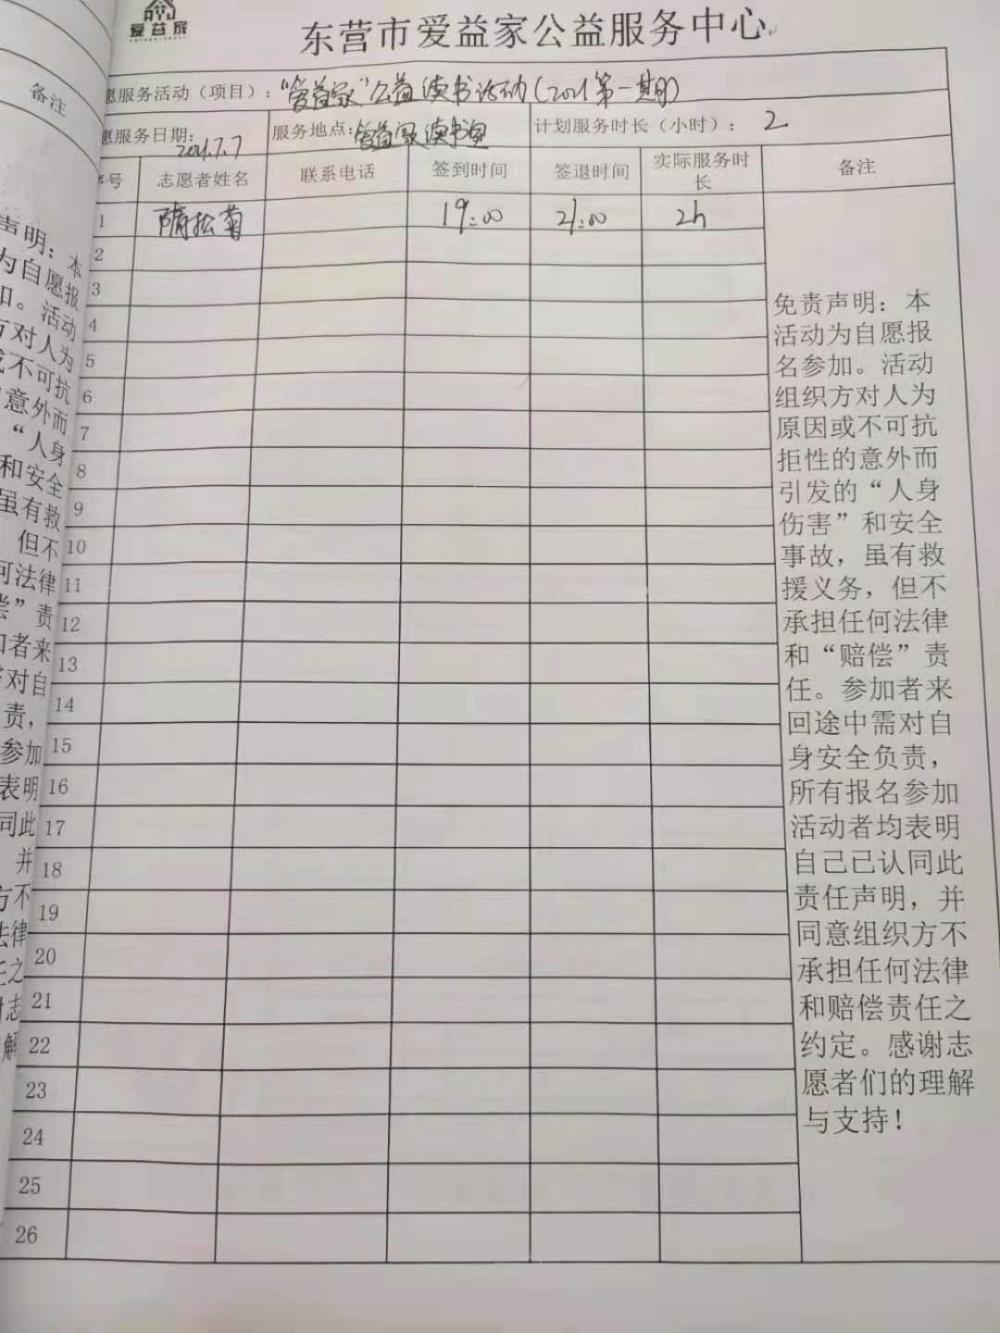 爱益家
东营市爱益家公益服务中心
备注
愿服务活动（项目）：“爱益家”公益读书活动（2021第一期）
愿服务日期：2021.7.7 服务地点：爱益家读书室 计划服务时长（小时）：2
号 志愿者姓名 联系电话 签到时间 签退时间 实际服务时长 备注
1 隋松菊 19:00 21:00 2h
2
3
4
5
6
7
8
9
10
11
12
13
14
15
16
17
18
19
20
21
22
23
24
25
26
免责声明：本
活动为自愿报
名参加。活动
组织方对人为
原因或不可抗
拒性的意外而
引发的“人身
伤害”和安全
事故，虽有救
援义务，但不
承担任何法律
和“赔偿”责
任。参加者来
回途中需对自
身安全负责，
所有报名参加
活动者均表明
自己已认同此
责任声明，并
同意组织方不
承担任何法律
和赔偿责任之
约定。感谢志
愿者们的理解
与支持！
声明：本
为自愿报
加。活动
方对人为
或不可抗
意外而
“人身
和安全
虽有救
但不
何法律
偿”责
加者来
对自
责，
参加
表明
同此
并
方不
法律
任之
志
解